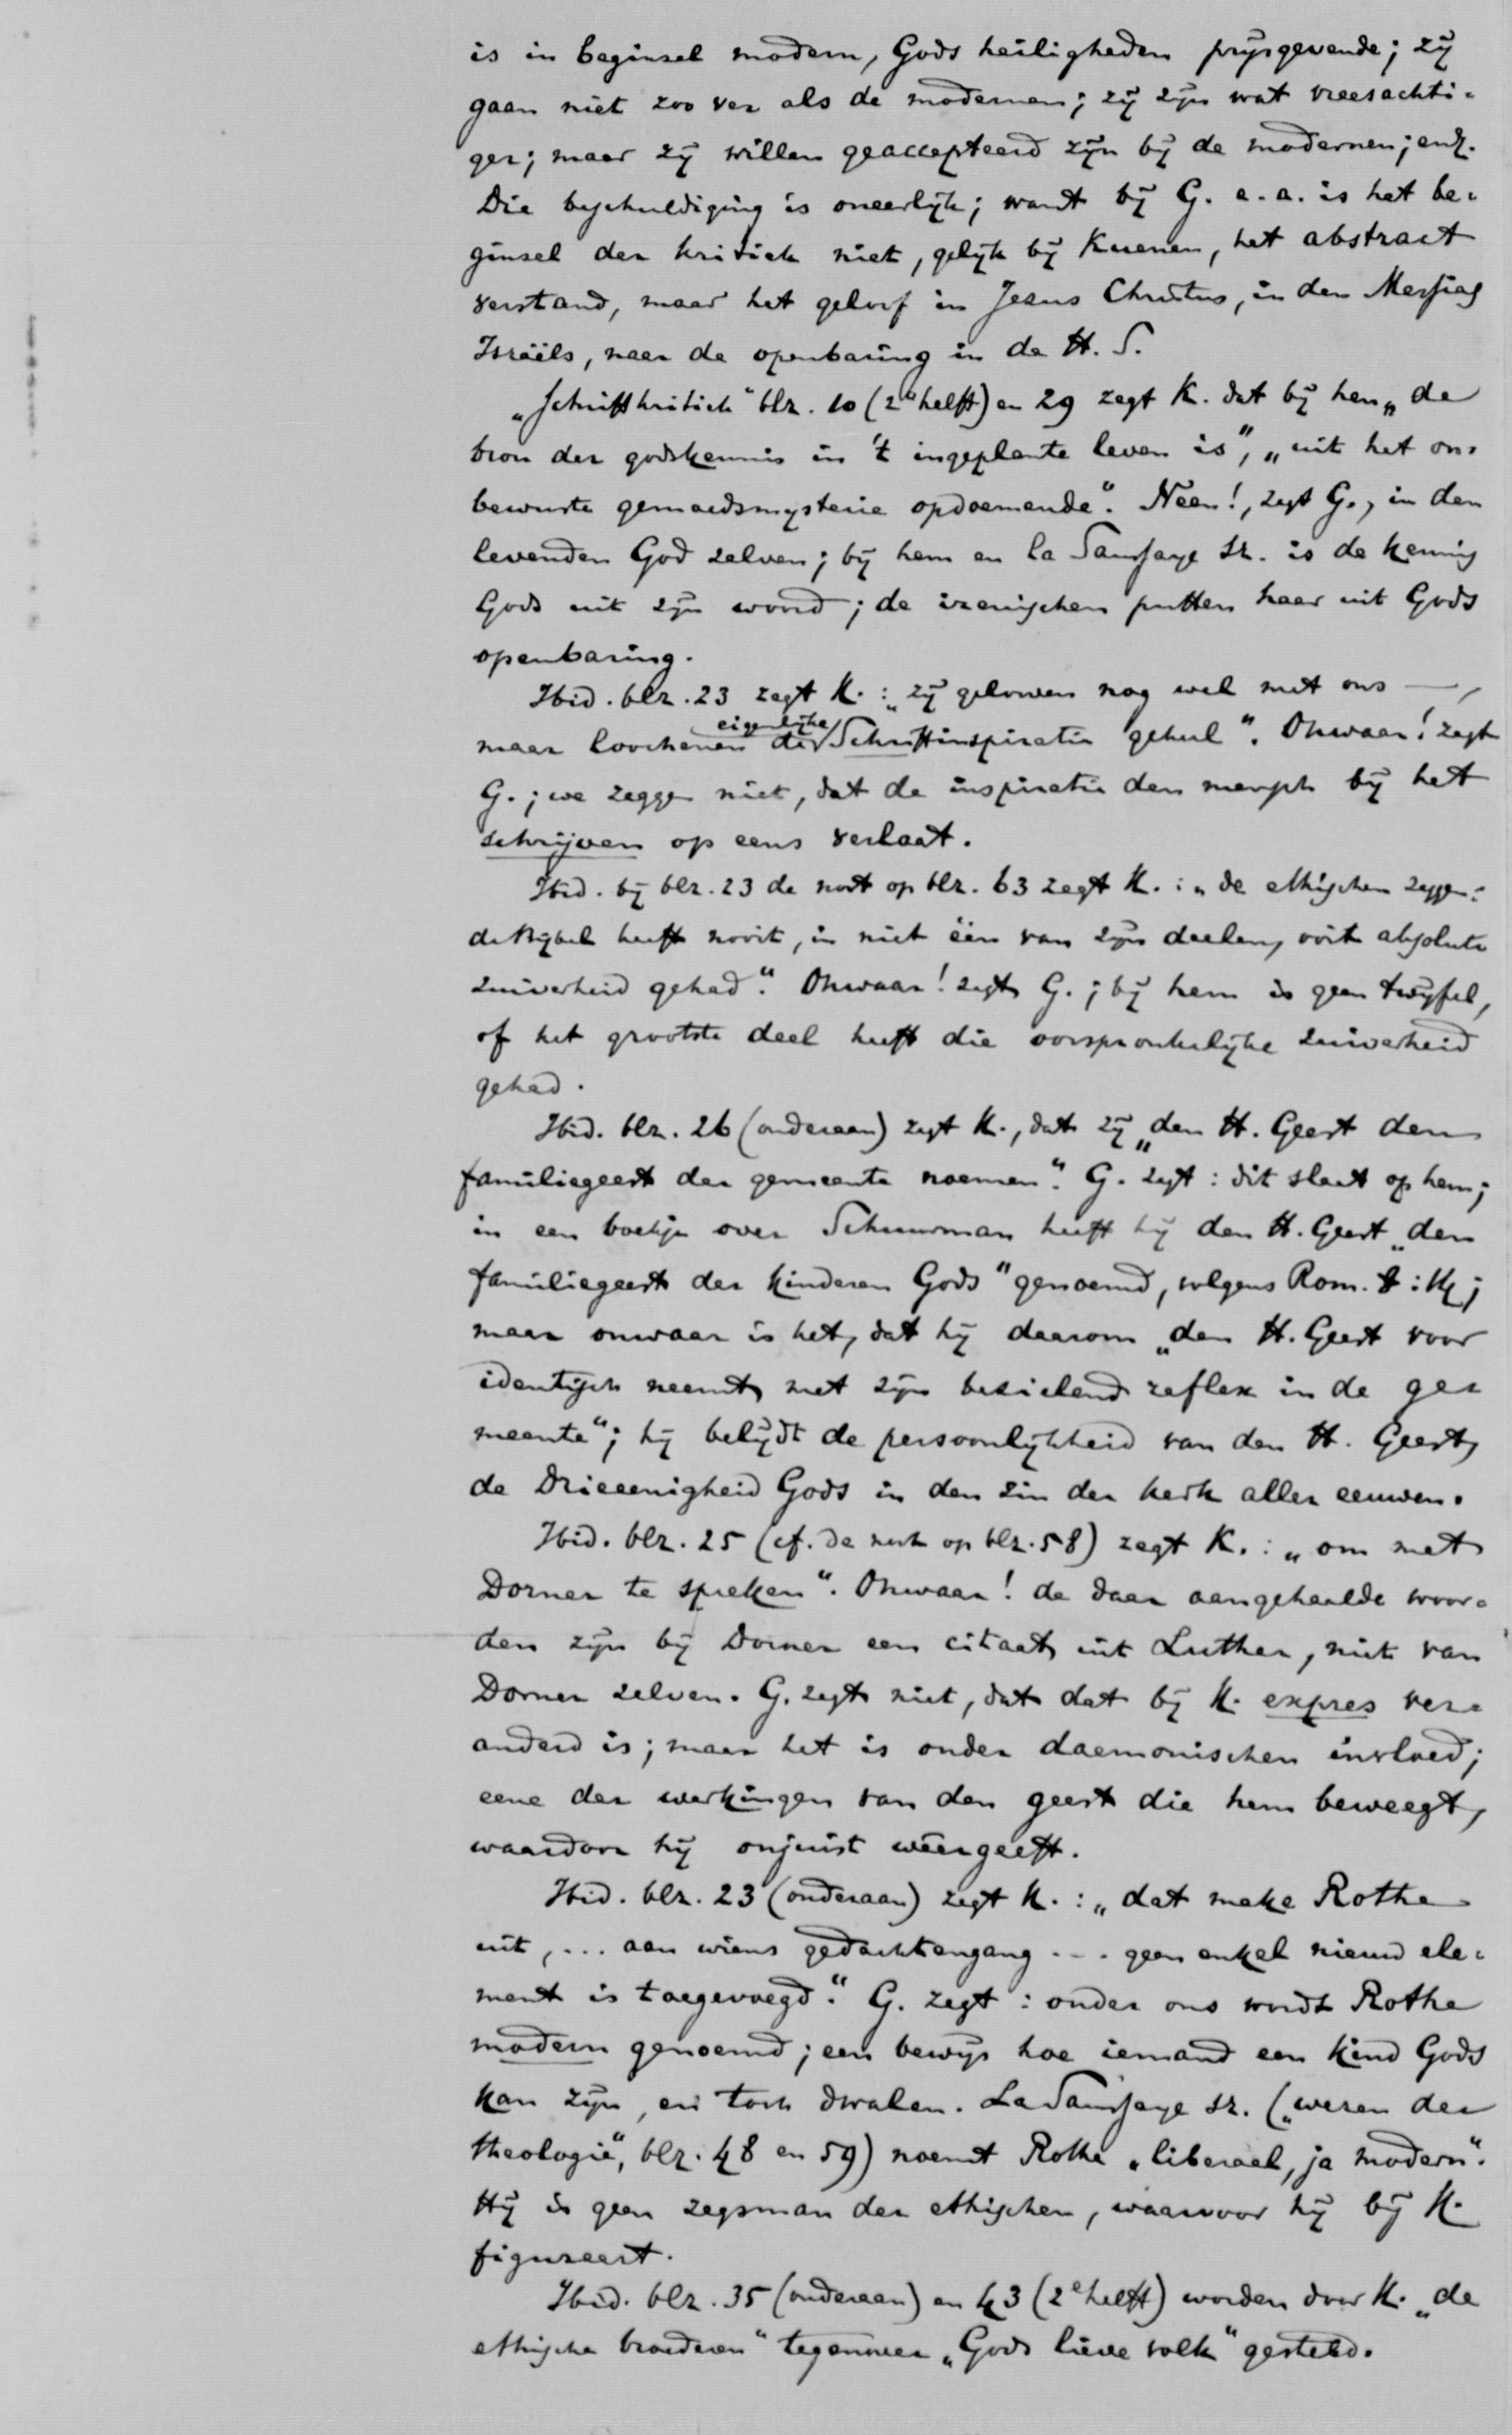 is in beginsel modern, Gods heiligheden prijsgevende; zij
gaan niet zoo ver als de modernen; zij zijn wat vreesachti-
ger; maar zij willen geaccepteerd zijn bij de modernen; enz.
Die beschuldiging is oneerlijk; want bij G. e. a. is het be-
ginsel der kritiek niet, gelijk bij Kuenen, het abstract
verstand, maar het geloof in Jezus Christus, in den Messias
Israëls, naar de openbaring in de H. S.
„Schriftkritiek“ blz. 10 (2e helft) en 29 zegt K. dat bij hen „de
bron der godskennis in 't ingeplante leven is“, „uit het on-
bewuste gemoedsmysterie opdoemende“. Neen!, zegt G., in den
levenden God zelven; bij hem en la Saussaye Sr. is de kennis
Gods uit zijn woord; de irenischen putten haar uit Gods
openbaring.
Ibid. blz. 23 zegt K.: „zij gelooven nog wel met ons —,
maar loochenen de eigenlijke Schriftinspiratie geheel“. Onwaar! zegt
G.; we zeggen niet, dat de inspiratie den mensch bij het
schrijven op eens verlaat.
Ibid. bij blz. 23 de noot op blz. 63 zegt K.: „de ethischen zeggen:
de Bijbel heeft nooit, in niet één van zijn deelen, ooit absolute
zuiverheid gehad“. Onwaar! zegt G.; bij hem is geen twijfel,
of het grootste deel heeft die oorspronkelijke zuiverheid
gehad.
Ibid. blz. 26 (onderaan) zegt K., dat zij „den H. Geest den
familiegeest der gemeente noemen“. G. zegt: dit slaat op hem;
in een boekje over Schuurman heeft hij den H. Geest „den
familiegeest der kinderen Gods“ genoemd, volgens Rom. 8:14;
maar onwaar is het, dat hij daarom „den H. Geest voor
identisch neemt met zijn bezielend reflex in de ge-
meente“; hij belijdt de persoonlijkheid van den H. Geest,
de Drieeenigheid Gods in den zin der kerk aller eeuwen.
Ibid. blz. 25 (cf. de noot op blz. 58) zegt K.: „om met
Dorner te spreken“. Onwaar! de daar aangehaalde woor-
den zijn bij Dorner een citaat uit Luther, niet van
Dorner zelven. G. zegt niet, dat dat bij K. expres ver-
anderd is; maar het is onder daemonischen invloed;
eene der werkingen van den geest die hem beweegt,
waardoor hij onjuist wêergeeft.
Ibid. blz. 23 (onderaan) zegt K.: „dat make Rothe
uit, ... aan wiens gedachtengang ... geen enkel nieuw ele-
ment is toegevoegd“. G. zegt: onder ons wordt Rothe
modern genoemd; een bewijs hoe iemand een kind Gods
kan zijn, en toch dwalen. La Saussaye Sr. („wezen der
theologie“, blz. 48 en 59) noemt Rothe „liberaal, ja modern“.
Hij is geen zegsman der ethischen, waarvoor hij bij K.
figureert.
Ibid. blz. 35 (onderaan) en 43 (2e helft) worden door K. „de
ethische broederen“ tegenover „Gods lieve volk“ gesteld.